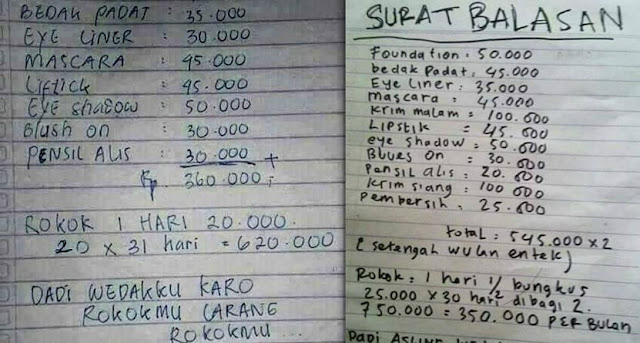 BEDAK PADAT : 35.000
EYE LINER : 30.000
MASCARA : 45.000
Liftick : 45.000
EYE Shadow : 50.000
Blush on : 30.000
PENSIL ALIS : 30.000 +
Rp. 360.000,-
ROKOK 1 HARI 20.000.
20 x 31 hari = 620.000
DADI WEDAKKU KARO
ROKOKMU LARANG
ROKOKMU...
SURAT BALASAN
Foundation : 50.000
bedak Padat : 45.000
Eye Liner : 35.000
mascara : 45.000
Krim malam = 100.000
Lipstik = 45.000
eye shadow : 50.000
Blues On : 30.000
Pensil alis : 20.000
Krim siang : 100 000
Pembersih : 25.000
total : 545.000 x 2
(setengah wulan entek)
Rokok : 1 hari 1/2 bungkus
25.000 x 30 hari dibagi 2.
750.000 = 350.000 PER Bulan